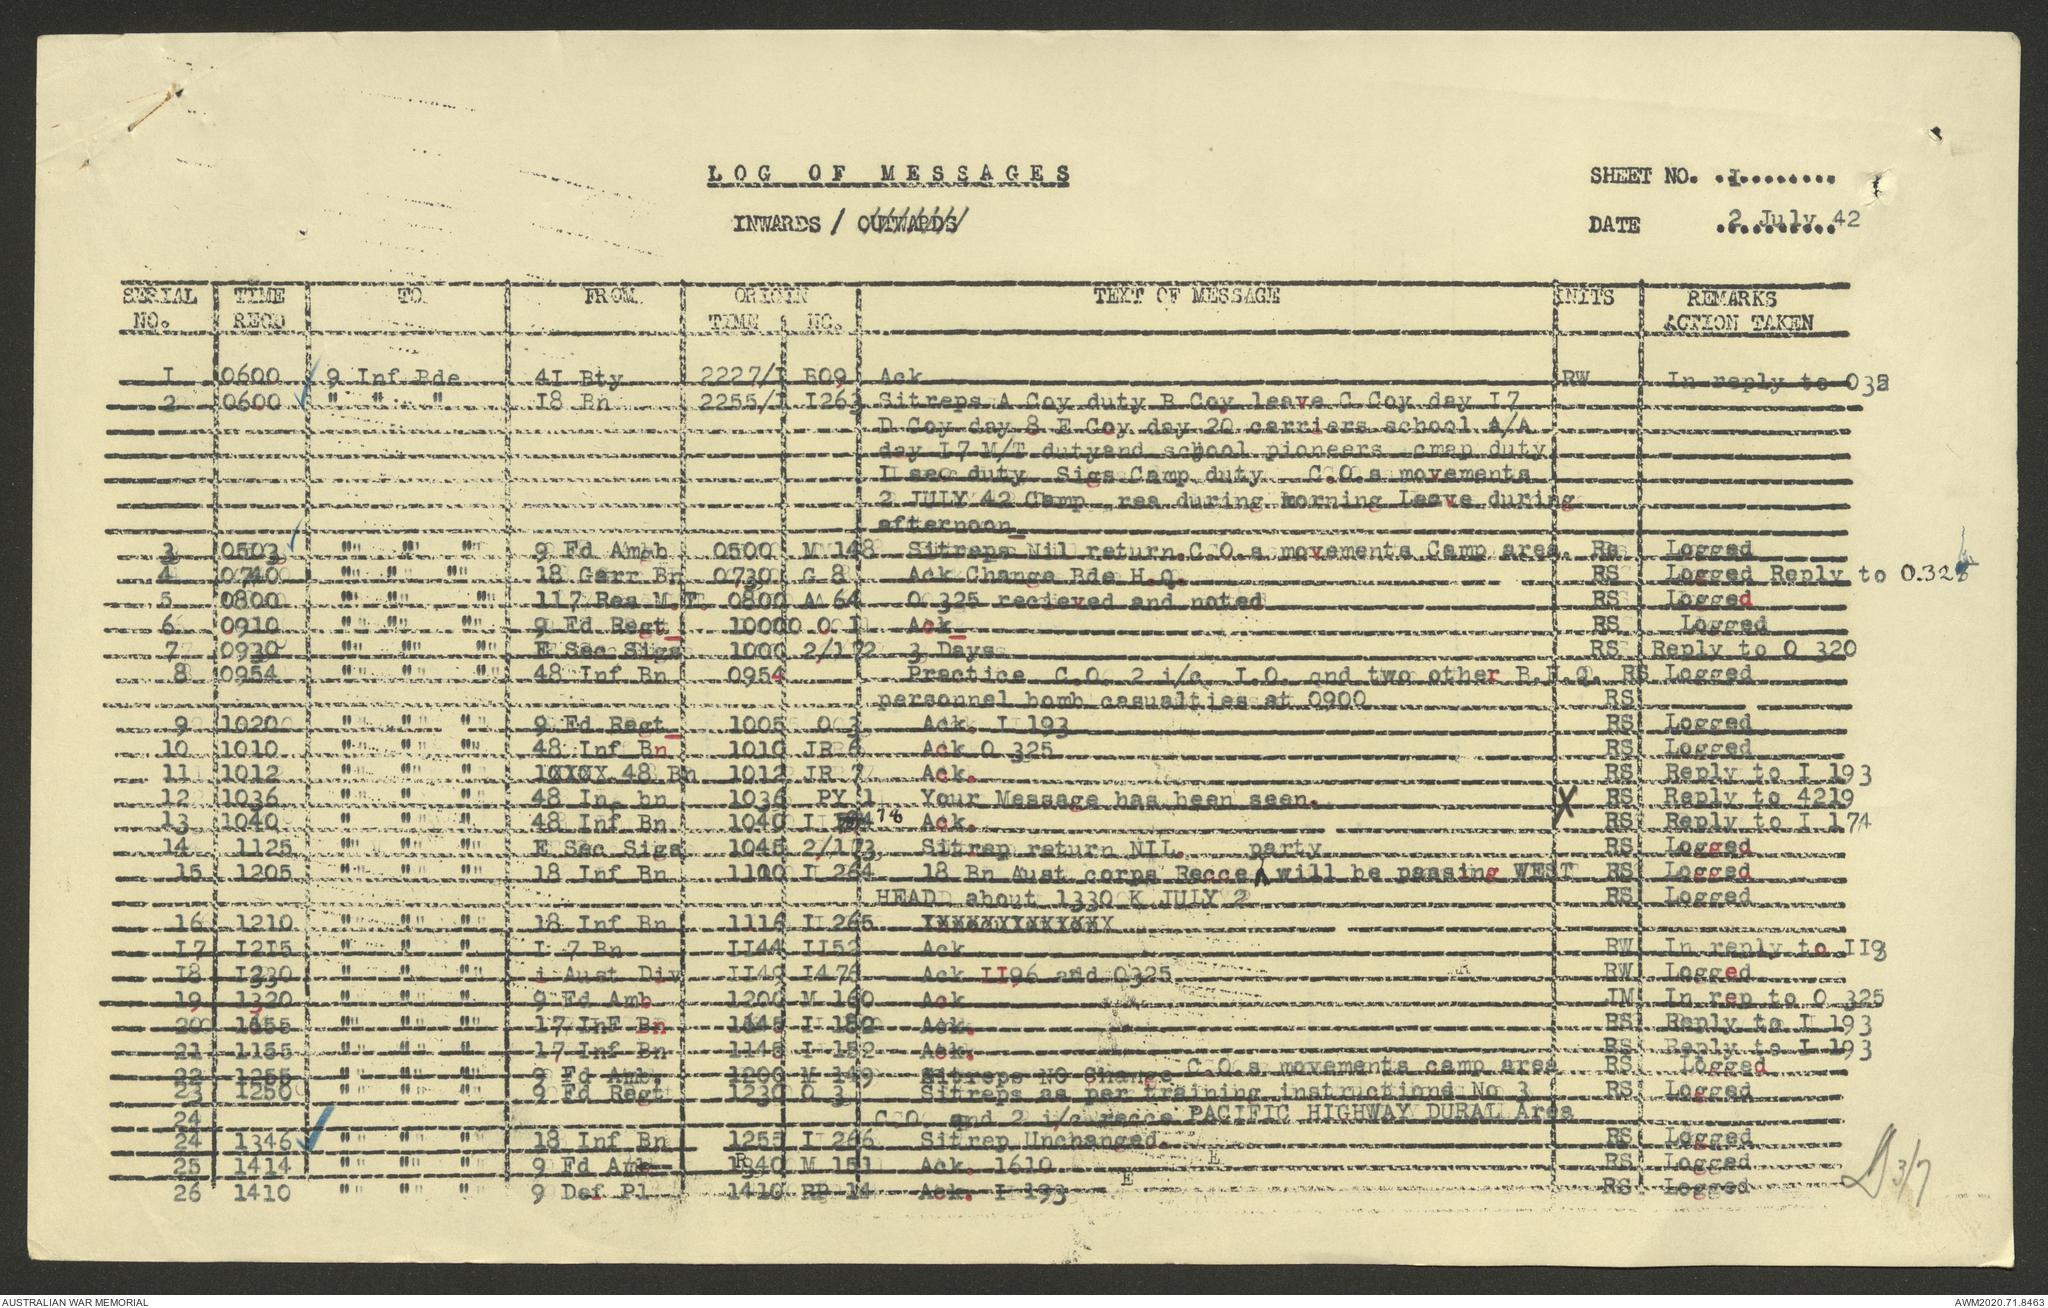 LOG OF MESSAGES
SHEET NO. I
INWARDS / OUTWARDS
DATE 2 July 42
SERIAL TIME TO FROM ORIGIN TEXT OF MESSAGE INITS REMARKS
NO. RECD TIME NO. ACTION TAKEN
I 0600 9 Inf Bde 4I Bty 2227/I B09 Ack RW In reply to 032
2 0600 " " " I8 Bn 2255/I I263 Sitreps A Coy duty B Coy leave C Coy day I7
D Coy day 8 E Coy day 20 carriers school A/A
day I7 M/T dutyand school pioneers cmap duty
I sec duty Sigs Camp duty C.O.s movements
2 JULY 42 Camp rea during morning Leave during
afternoon
3 0503 " " " 9 Fd Amb 0500 M 148 Sitreps Nil return.C.O.s movements Camp area. Rs Logged
4 0740 " " " 18 Garr Bn 0730 G 8 Ack Change Bde H.Q. RS Logged Reply to O.328
5 0800 " " " 117 Res M.T. 0800 A 64 O 325 recieved and noted RS Logged
6 0910 " " " 9 Fd Regt 1000 O 1 Ack RS Logged
7 0930 E Sec Sigs 1000 2/172 3 Days RS Reply to O 320
8 0954 " " " 48 Inf Bn 0954 Practice C.O. 2 i/c I.O. and two other B.H.Q. RS Logged
personnel bomb casualties at 0900 RS
9 1020 " " " 9 Fd Regt 1005 O 3 Ack. I 193 RS Logged
10 1010 " " " 48 Inf Bn 1010 JR 6 Ack O 325 RS Logged
11 1012 " " " 1XXXX 48 Bn 1012 JR 7 Ack. RS Reply to I 193
12 1036 " " " 48 In bn 1036 PY 1 Your Message has been seen. X RS Reply to 4219
13 1040 " " " 48 Inf Bn 1040 I 78 Ack. RS Reply to I 174
14 1125 " " " E Sec Sigs 1045 2/173 Sitrep return NIL. party RS Logged
15 1205 " " " 18 Inf Bn 1100 I 264 18 Bn Aust corps Recce will be passing WEST RS Logged
HEAD about 1330 K JULY 2 RS Logged
16 1210 " " " 18 Inf Bn 1116 I 265 XXXXXXXXXXXXX
I7 I2I5 " " " I 7 Bn II44 II52 Ack RW In reply to II93
I8 I230 " " " i Aust Div II49 I476 Ack II96 and O325 RW Logged
19 1320 " " " 9 Fd Amb 1200 M 160 Ack JM In rep to O 325
20 1655 " " " 17 InF Bn 1645 I 182 Ack. RS Reply to I 193
21 1155 " " " 17 Inf Bn 1145 I 152 Ack. RS Reply to I 193
22 1255 " " " 9 Fd Amb. 1200 M 149 Sitreps NO Change C.O.s movements camp area RS Logged
23 1250 " " " 9 Fd Regt 1230 O 3 Sitreps as per training instructionnd No 3 RS Logged
24 C.O. and 2 i/c recce PACIFIC HIGHWAY DURAL Area
24 1346 " " " 18 Inf Bn 1255 I 266 Sitrep Unchanged. RS Logged
25 1414 " " " 9 Fd Amb 1340 M 151 Ack. 1610 E RS Logged
26 1410 " " " 9 Def Pl 1410 RP 14 Ack. I 193 E RS Logged
3/7
AUSTRALIAN WAR MEMORIAL
AWM2020.71.8463